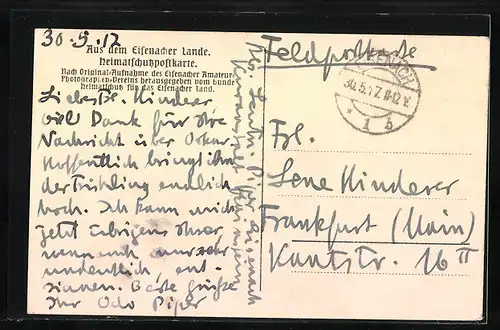 30.5.17
Aus dem Eisenacher Lande.
Heimatschutzpostkarte.
Nach Original-Aufnahme des Eisenacher Amateur-
Photographen-Vereins herausgegeben vom Bunde
Heimatschutz für das Eisenacher Land.
Liebes Frl. Kinderer,
viel Dank für Ihre
Nachricht über Oskar.
Hoffentlich bringt ihn
der Frühling endlich
hoch. Ich kann mich
jetzt übrigens Ihrer,
wenn auch nur sehr
undeutlich, ent-
sinnen. Beste Grüße
Ihr Odo Piper
Piper Eisenach
Feldpostkarte
EISENACH
30.5.17. 11-12 V.
* 1 b
Frl.
Lene Kinderer
Frankfurt (Main)
Kantstr. 16 II